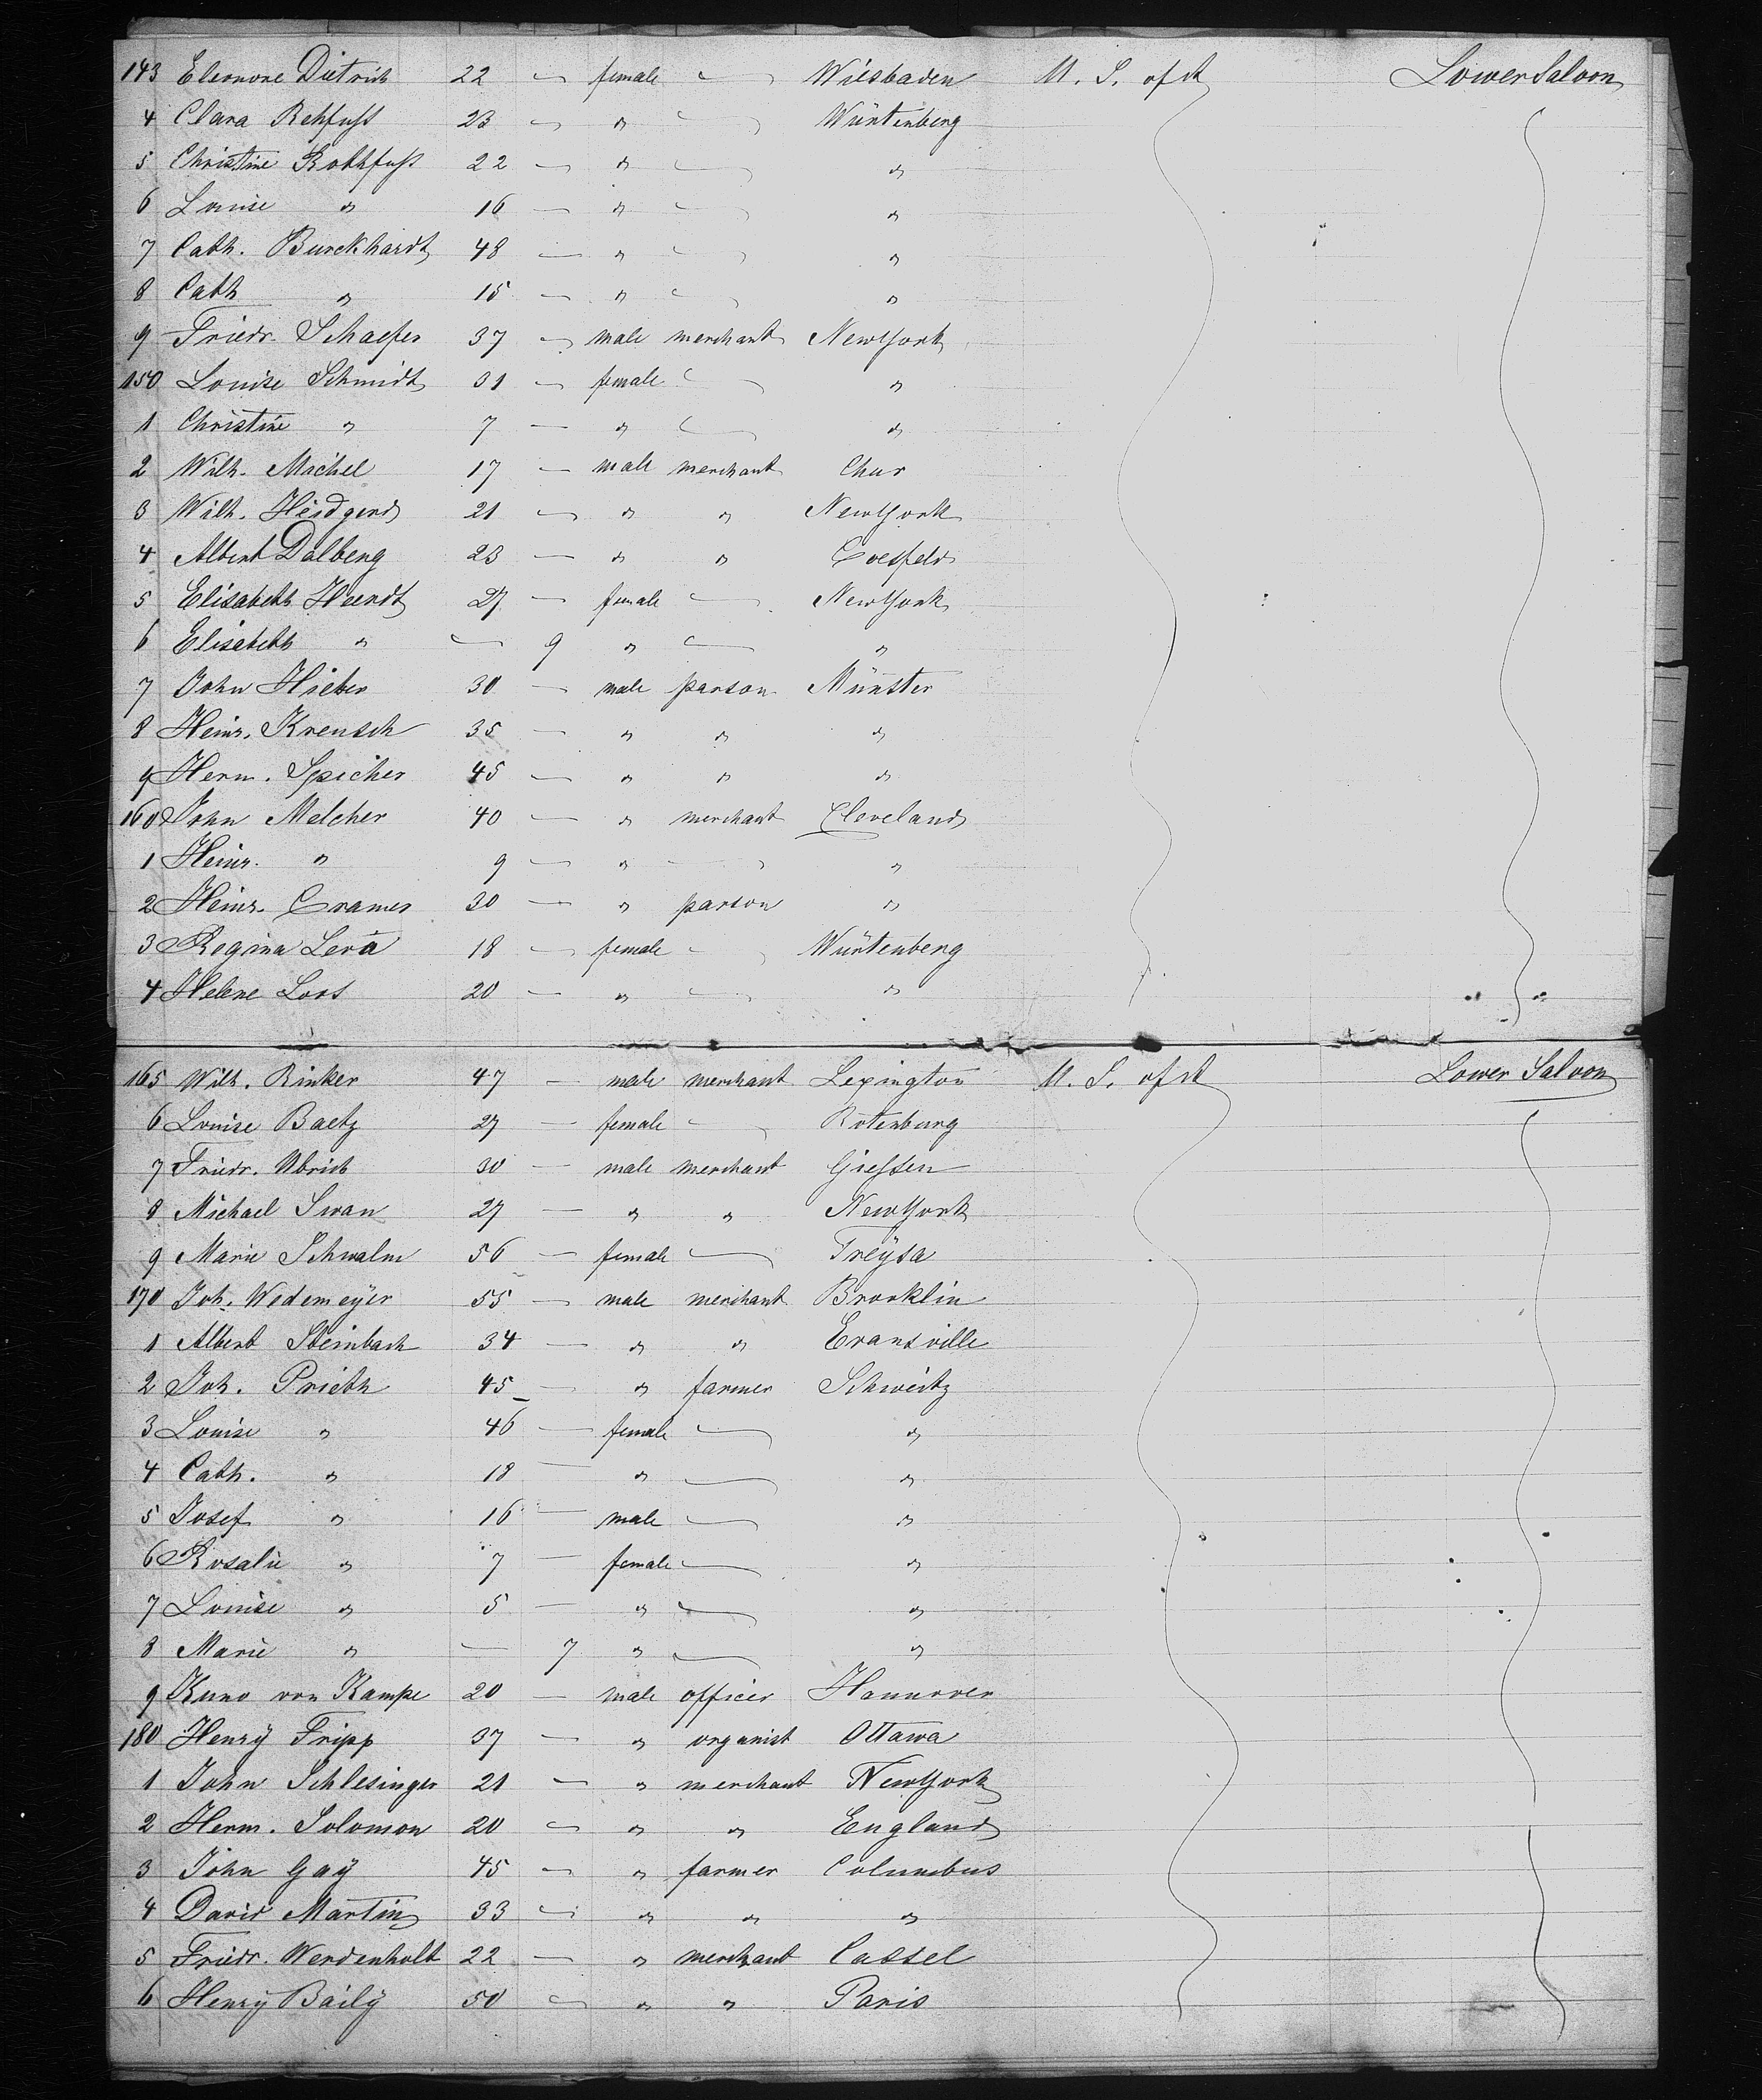 143 Eleonore Dietrich 22 — female — Wiesbaden U. S. of A Lower Saloon
4 Clara Rehfuß 23 — " — Würtenberg
5 Christine Rothfuß 22 — " — "
6 Louise " 16 — " — "
7 Cath. Burckhardt 48 — " — "
8 Cath " 15 — " — "
9 Friedr. Schaefer 37 — male merchant New York
150 Louise Schmidt 31 — female — "
1 Christine " 7 — " — "
2 Wilh. Michel 17 — male merchant Chur
3 Wilh. Heidgerd 21 — " " New York
4 Albert Dalberg 23 — " " Coesfeld
5 Elisabeth Heendt 27 — female — New York
6 Elisabeth " — 9 " — "
7 John Hieber 30 — male parson Münster
8 Heinr. Kreusch 35 — " " "
9 Herm. Speicher 45 — " " "
160 John Melcher 40 — " merchant Cleveland
1 Heinr. " 9 — " — "
2 Heinr. Cramer 30 — " parson "
3 Regina Lera 18 — female — Würtenberg
4 Helene Loos 20 — " — "
165 Wilh. Rinker 47 — male merchant Lexington U. S. of A Lower Saloon
6 Louise Baetz 27 — female — Rotenburg
7 Friedr. Ubrich 30 — male merchant Gießen
8 Michael Swan 27 — " " New York
9 Marie Schwalm 56 — female — Treÿsa
170 Joh. Wedemeÿer 55 — male merchant Brooklin
1 Albert Steinbach 34 — " " Evansville
2 Joh. Prieth 45 — " farmer Schweitz
3 Louise " 46 — female — "
4 Cath. " 18 — " — "
5 Josef " 16 — male — "
6 Rosalie " 7 — female — "
7 Louise " 5 — " — "
8 Marie " — 7 " — "
9 Kuno von Kampe 20 — male officer Hannover
180 Henrÿ Fripp 37 — " organist Ottawa
1 John Schlesinger 21 — " merchant New York
2 Herm. Solomon 20 — " " England
3 John Gaÿ 45 — " farmer Columbus
4 David Martin 33 — " " "
5 Friedr. Werdenholt 22 — " merchant Cassel
6 Henrÿ Bailÿ 50 — " " Paris